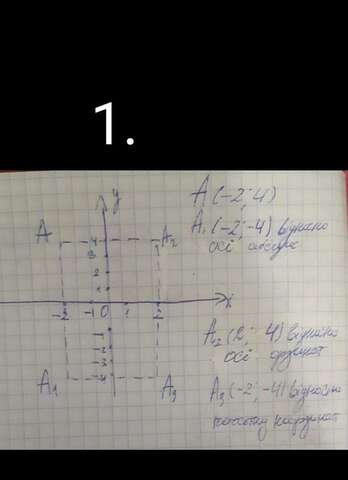 1.
y
A(-2; 4)
A₁(-2; -4) відносно
осі абсцис
A 4 A₂
3
2
1
-2 -1 0 1 2 x
A₂(2; 4) відносно
осі ординат
-1
-2
-3
A₁ -4 A₃
A₃(-2; -4) відносно
початку координат